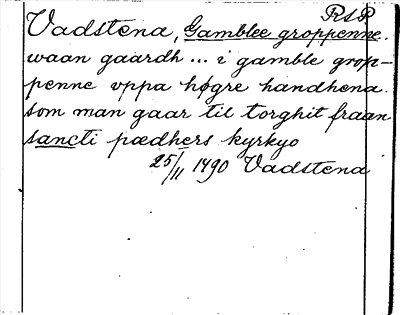 RAP
Vadstena, Gamblee groppenne.
waan gaardh ... i gamble grop-
penne vppa høgre handhena.
som man gaar til torghit fraan
sancti pædhers kyrkyo
25/II 1490 Vadstena